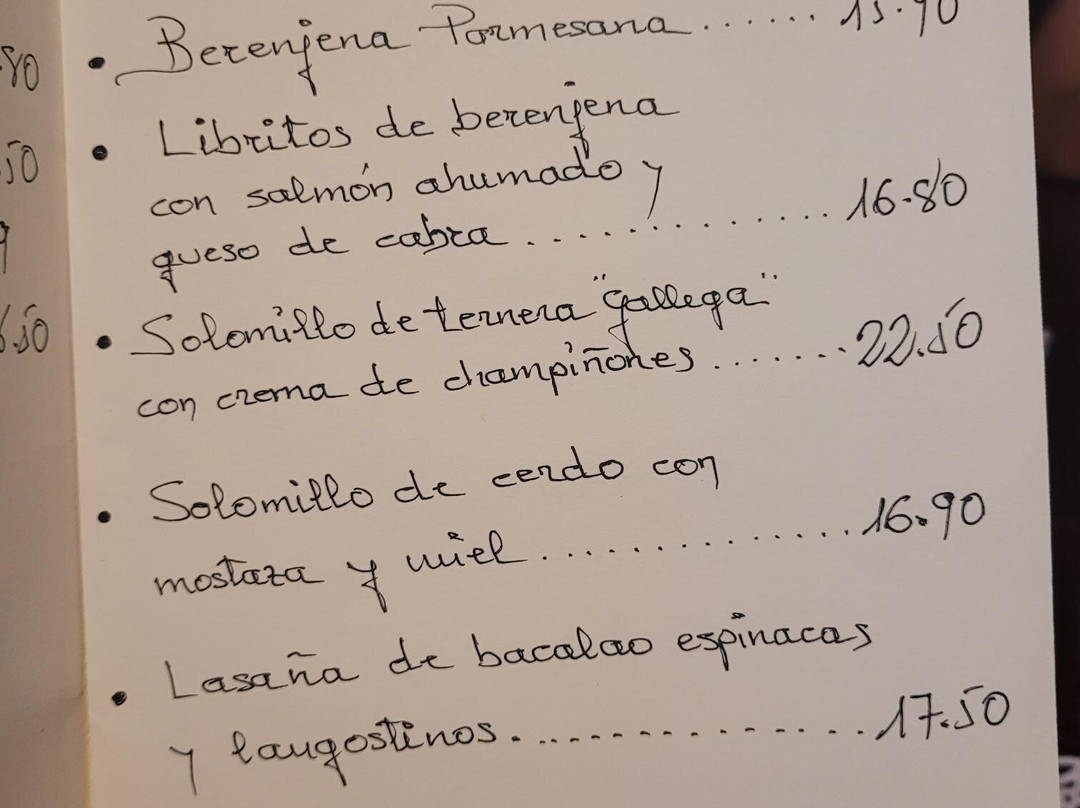 • Berenjena Parmesana ...... 15.90
• Libritos de berenjena
con salmón ahumado y
queso de cabra ............. 16.80
• Solomillo de ternera "gallega"
con crema de champiñones ....... 22.50
• Solomillo de cerdo con
mostaza y miel ............. 16.90
• Lasaña de bacalao espinacas
y langostinos ............. 17.50
80
50
9
.50